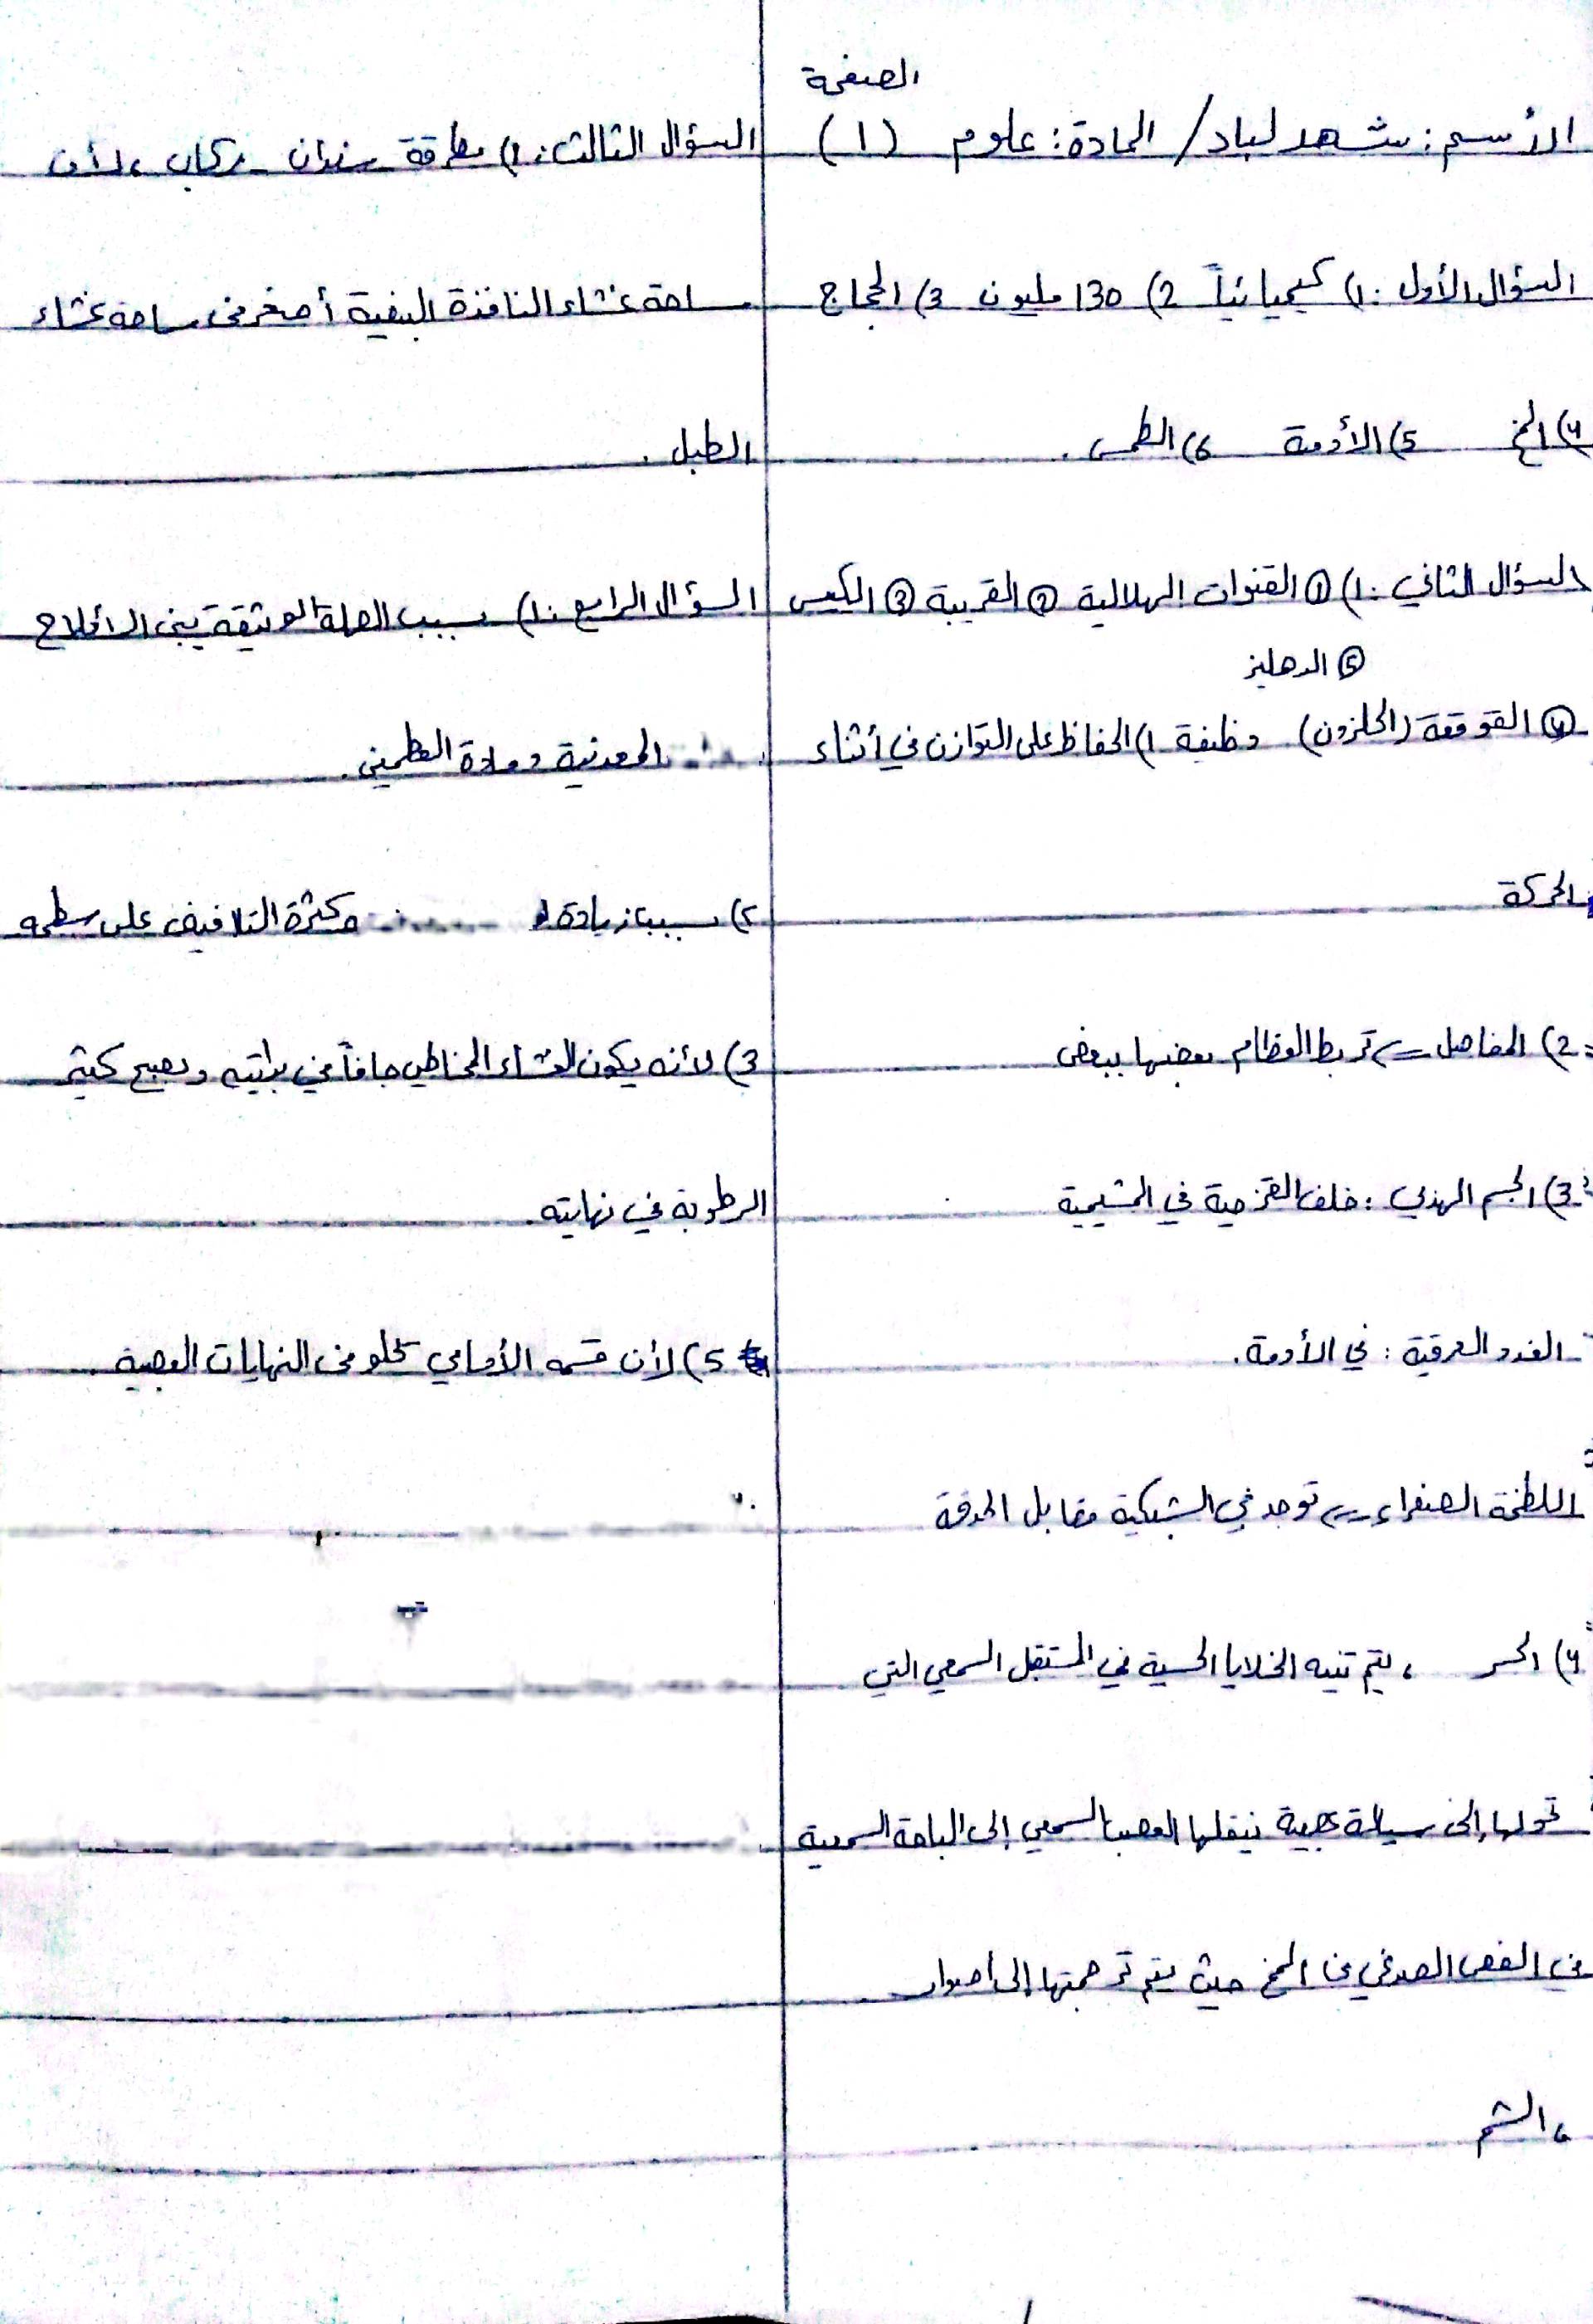 الصفحة
الأسم: شهد لباد / المادة: علوم (1)
السؤال الأول: 1) كيميائياً 2) 130 مليون 3) الحجاج
4) المخ 5) الأدمة 6) الطمس.
السؤال الثاني: 1) ① القنوات الهلالية ② القريبة ③ الكيس
⑤ الدهليز
④ القوقعة (الحلزون) وظيفة 1) الحفاظ على التوازن في أثناء
الحركة
2) المفاصل => تربط العظام بعضها ببعض
3) الجسم الهدبي: خلف القزحية في المشيمية
الغدد العرقية: في الأدمة.
اللطخة الصفراء => توجد في الشبكية مقابل الحدقة
4) ، يتم تنبيه الخلايا الحسية في المستقبل السمعي التي
تحولها إلى سيالة عصبية ينقلها العصب السمعي إلى الباحة السمعية
في الفص الصدغي من المخ حيث يتم ترجمتها إلى أصوات
، الشم
السؤال الثالث: 1) مطرقة سندان - ركاب ، لأن
مساحة غشاء النافذة البيضية أصغر من مساحة غشاء
الطبل.
السؤال الرابع: 1) بسبب الصلة الوثيقة بين الأملاح
المعدنية ومادة العظمين.
2) بسبب زيادة وكثرة التلافيف على سطحه
3) لأنه يكون الغشاء المخاطي جافاً في بدايته ويصبح كثير
الرطوبة في نهايته.
5) لأن قسمه الأمامي يخلو من النهايات العصبية.